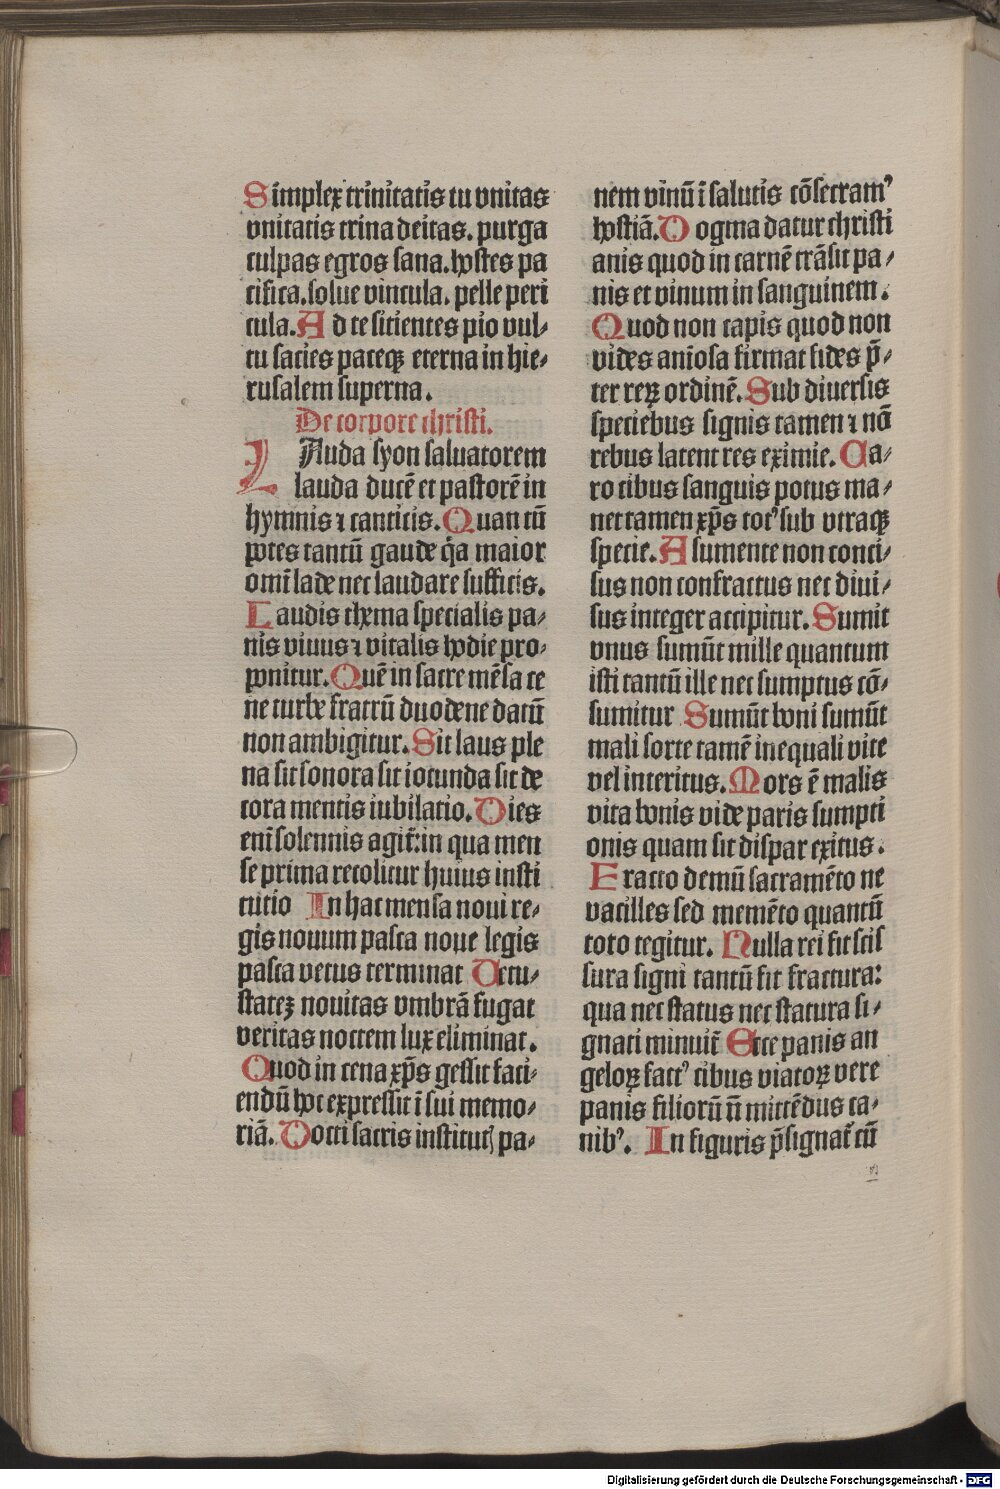 Simplex trinitatis tu vnitas
vnitatis trina deitas. purga
culpas egros sana. hostes pa
cifica. solue vincula. pelle peri
cula. Ad te sitientes pio vul-
tu sacies pateqꝫ eterna in hie-
rusalem superna.
De corpore christi.
LAuda syon saluatorem
lauda ducē et pastorē in
hymnis ⁊ canticis. Quantū
potes tantū gaude q̄a maior
omī lade nec laudare sufficis.
Laudis thema specialis pa-
nis viuus ⁊ vitalis hodie pro-
ponitur. Quē in sacre mēsa ce
ne turbe fratrū duodene datū
non ambigitur. Sit laus ple
na sit sonora sit iocunda sit de
cora mentis iubilatio. Dies
enī solennis agit᷑: in qua men
se prima recolitur huius insti
tutio In hac mensa noui re-
gis nouum pasca noue legis
pasca vetus terminat Vetu-
statēꝫ nouitas vmbrā fugat
veritas noctem lux eliminat.
Quod in cena xp̄s gessit faci-
endū hoc expressit ī sui memo-
riā. Docti sacris institutꝭ pa-
nem vinū ī salutis cōsecramꝰ
hostiā. Dogma datur christi
anis quod in carnē trāsit pa-
nis et vinum in sanguinem.
Quod non capis quod non
vides aniosa firmat fides p̄-
ter reꝝ ordinē. Sub diuersis
speciebus signis tamen ⁊ nō
rebus latent res eximie. Ca-
ro cibus sanguis potus ma-
net tamen xp̄s totꝰ sub vtraqꝫ
specie. A sumente non conci-
sus non confractus nec diui-
sus integer accipitur. Sumit
vnus sumūt mille quantum
isti tantū ille nec sumptus cō-
sumitur Sumūt boni sumūt
mali sorte tamē inequali vite
vel interitus. Mors ē malis
vita bonis vide paris sumpti
onis quam sit dispar exitus.
Fracto demū sacramēto ne
vacilles sed memēto quantū
toto tegitur. Nulla rei fit scis
sura signi tantū fit fractura:
qua nec status nec statura si-
gnati minuit᷑ Ecce panis an
geloꝝ factꝰ cibus viatoꝝ vere
panis filiorū n̄ mittēdus ca-
nibꝰ. In figuris p̄signat᷑ cū
Digitalisierung gefördert durch die Deutsche Forschungsgemeinschaft - DFG